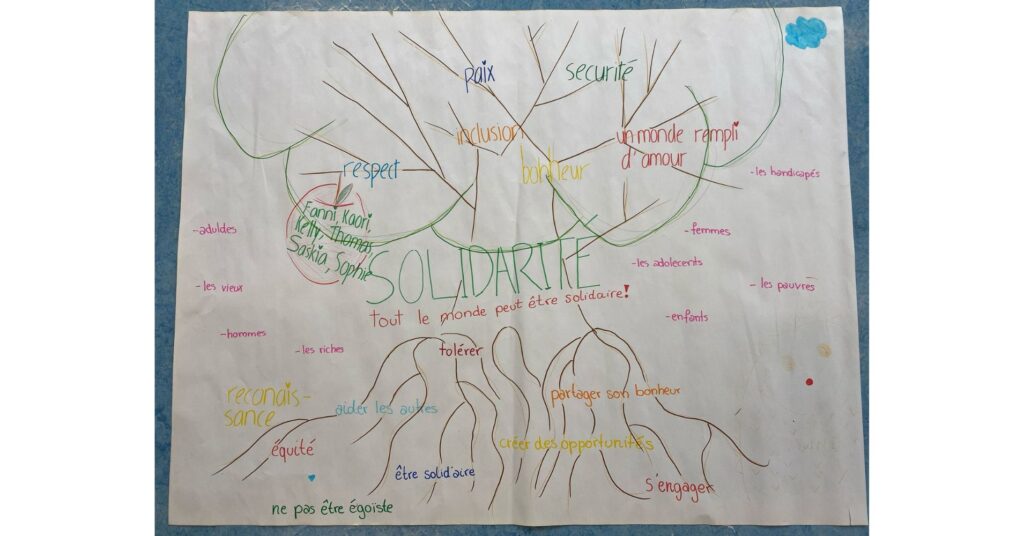 paix
securité
inclusion
un monde rempli
d'amour
respect
bonheur
-les handicapés
Fanni, Kaori,
Kelly, Thomas,
Saskia, Sophie
-aduldes
-femmes
SOLIDARITÉ
-les adolecents
-les vieux
-les pauvres
tout le monde peut être solidaire!
-enfants
-hommes
-les riches
tolérer
reconais-
sance
partager son bonheur
aider les autres
équité
créer des opportunités
être solidaire
s'engager
ne pas être égoïste